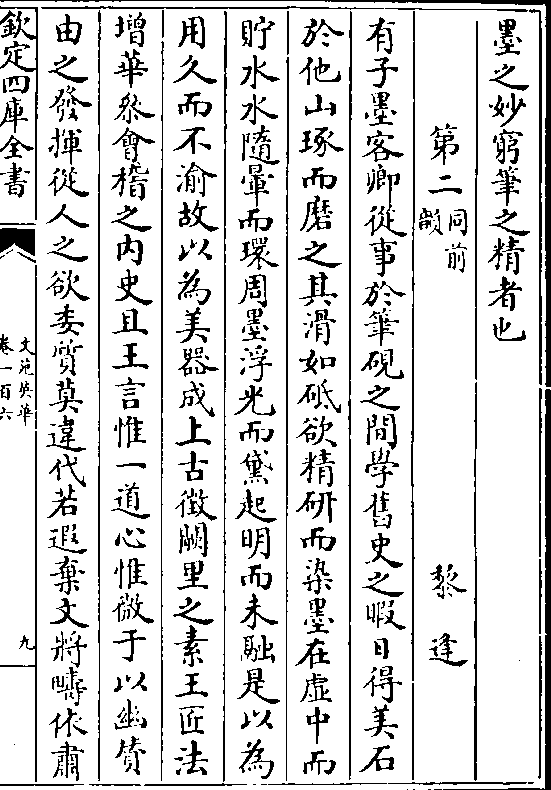 墨之妙窮筆之精者也
第二同前韻 黎逢
有子墨客卿從事於筆硯之間學舊史之暇日得美石
於他山琢而磨之其滑如砥欲精研而染墨在虛中而
貯水水隨暈而環周墨浮光而黛起明而未融是以為
用久而不渝故以為美器成上古徵闕里之素王匠法
增華參會稽之内史且王言惟一道心惟微于以幽贊
由之發揮從人之欲委質莫違代若遐棄文將疇依肅
欽定四庫全書
文苑英華
卷一百六
九